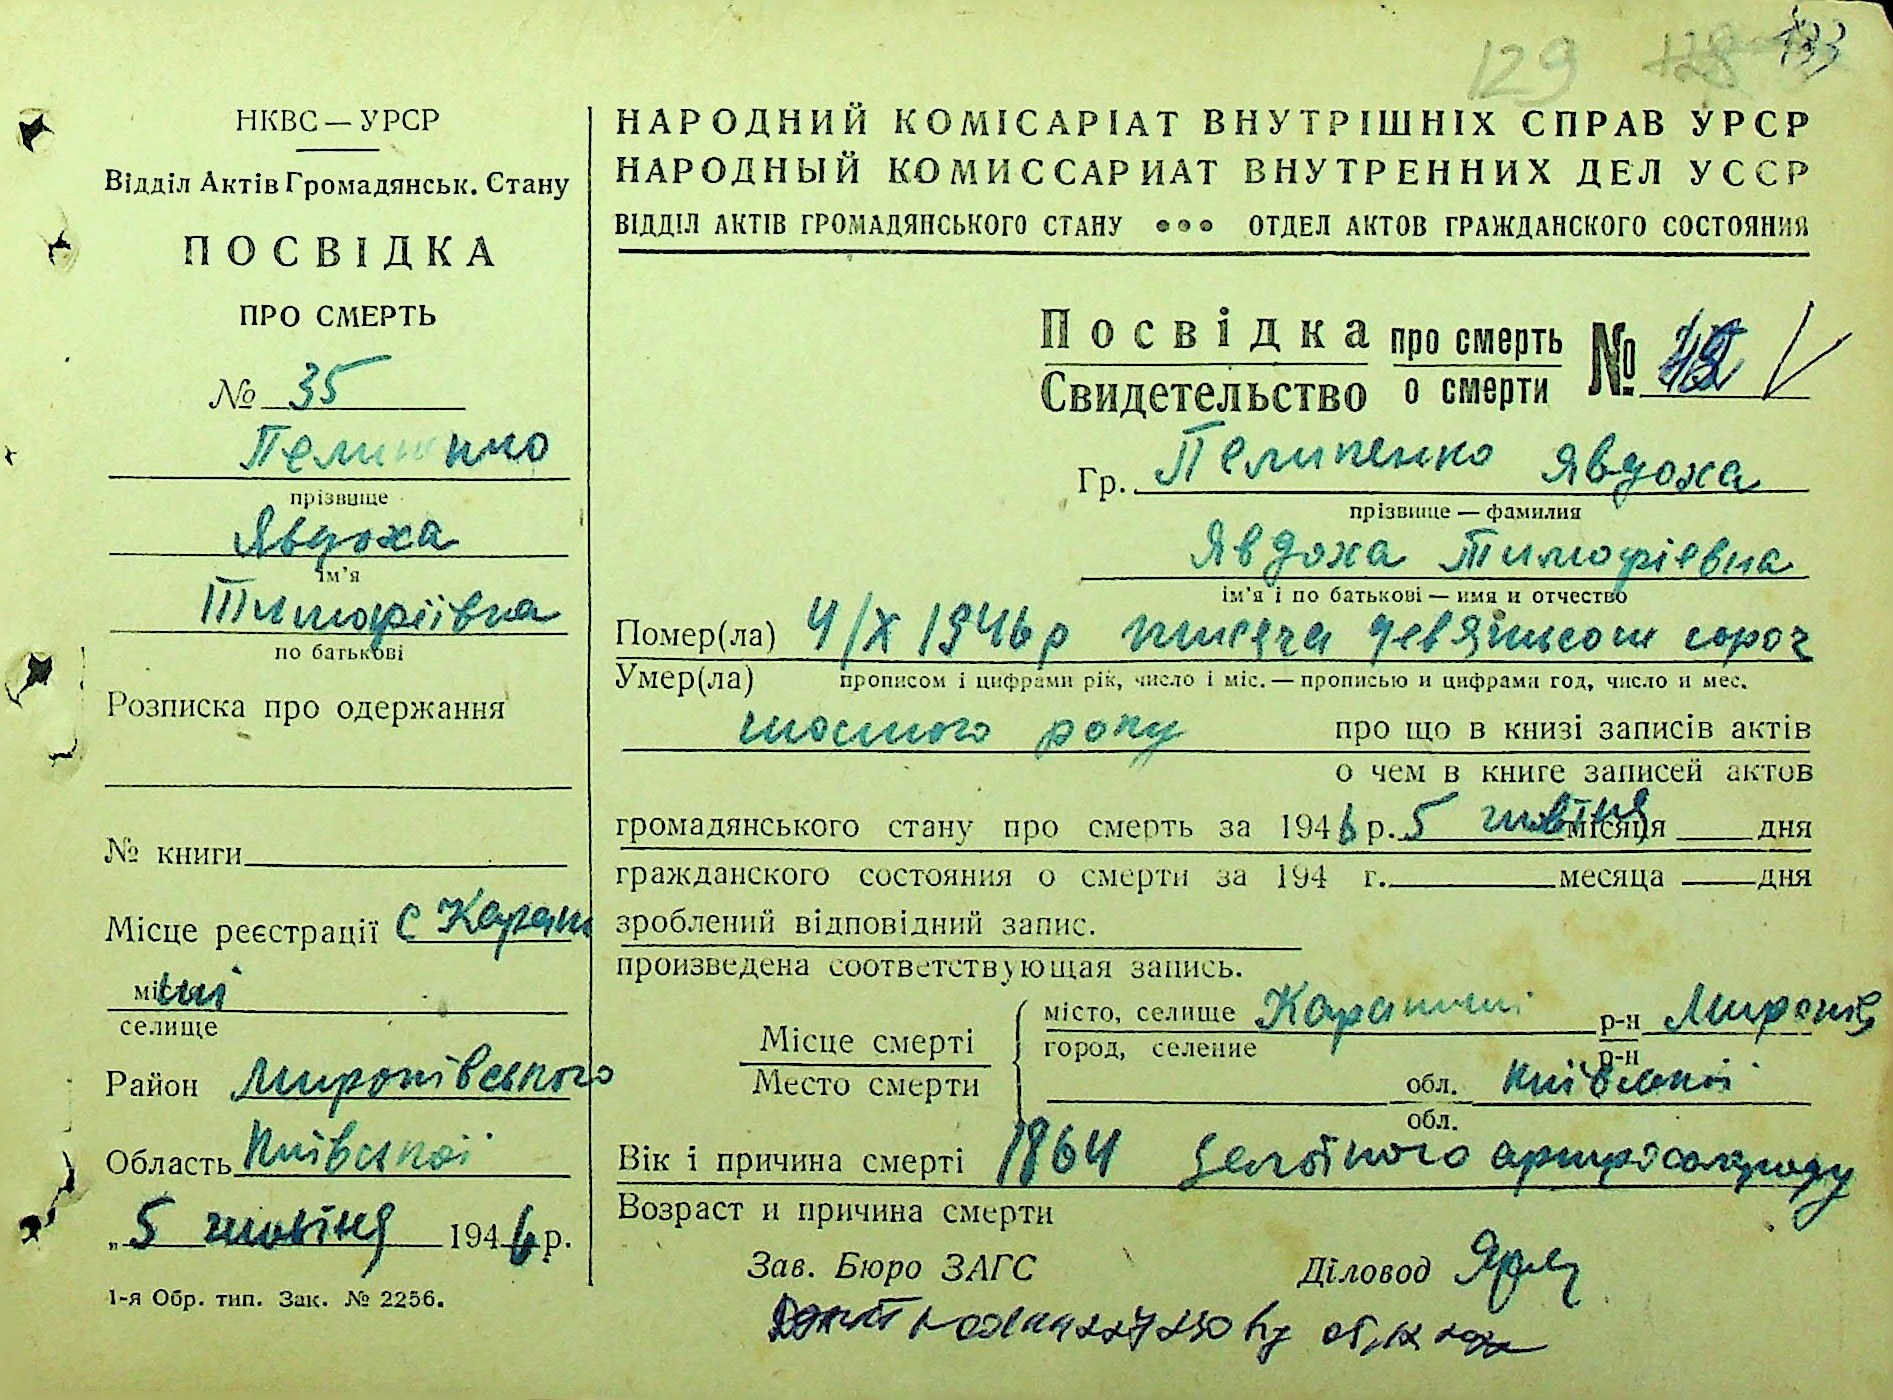 129 128 133
НКВС — УРСР
Відділ Актів Громадянськ. Стану
ПОСВІДКА
ПРО СМЕРТЬ
№ 35
Пелипенко
прізвище
Явдоха
ім'я
Тимофіївна
по батькові
Розписка про одержання
№ книги
Місце реєстрації с Карапи
ші
селище
Район Миронівського
Область Київської
„5 жовтня 1946 р.
1-я Обр. тип. Зак. № 2256.
НАРОДНИЙ КОМІСАРІАТ ВНУТРІШНІХ СПРАВ УРСР
НАРОДНЫЙ КОМИССАРИАТ ВНУТРЕННИХ ДЕЛ УССР
ВІДДІЛ АКТІВ ГРОМАДЯНСЬКОГО СТАНУ ••• ОТДЕЛ АКТОВ ГРАЖДАНСКОГО СОСТОЯНИЯ
Посвідка про смерть №
Свидетельство о смерти
Гр. Пелипенко Явдоха
прізвище — фамилия
Явдоха Тимофіевна
ім'я і по батькові — имя и отчество
Помер(ла) 4/X 1946 р тисяча девятьсот сороч
Умер(ла) прописом і цифрами рік, число і міс. — прописью и цифрами год, число и мес.
шостого року про що в книзі записів актів
о чем в книге записей актов
громадянського стану про смерть за 1946 р. 5 жовтня місяця дня
гражданского состояния о смерти за 194 г. месяца дня
зроблений відповідний запис.
произведена соответствующая запись.
Місце смерті місто, селище Карапиші р-н Миронів
Место смерти город, селение р-н
обл. Київської
обл.
Вік і причина смерті 1864
Возраст и причина смерти
Зав. Бюро ЗАГС Діловод